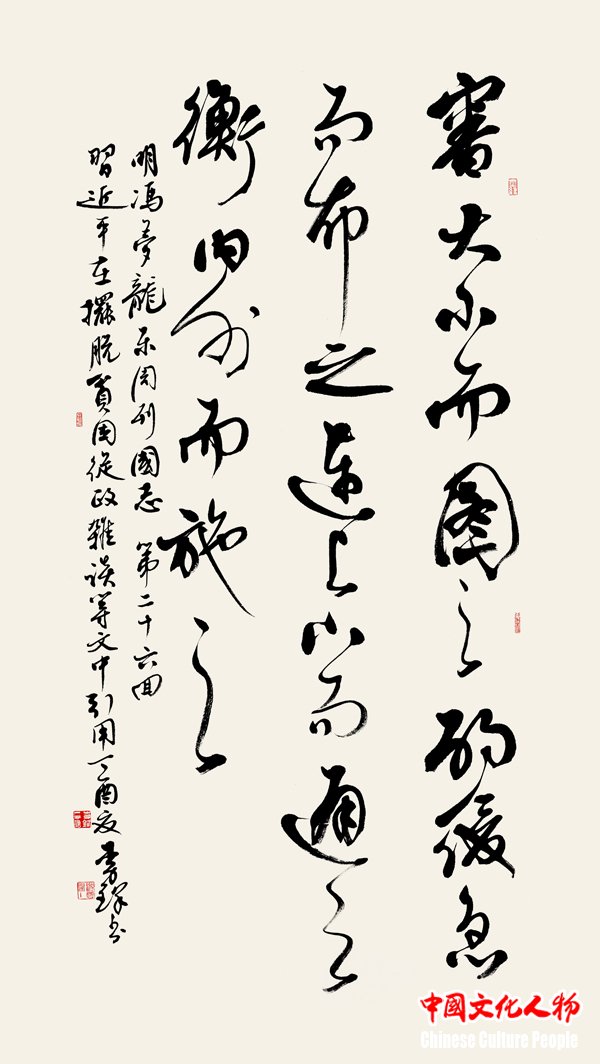 審大小而图之酌緩急
而布之連上下而通之
衡内外而施之
明冯夢龍东周列國志 第二十六回
習近平在擺脱貧困從政雜谈等文中引用丁酉夏
中國文化人物
Chinese Culture People